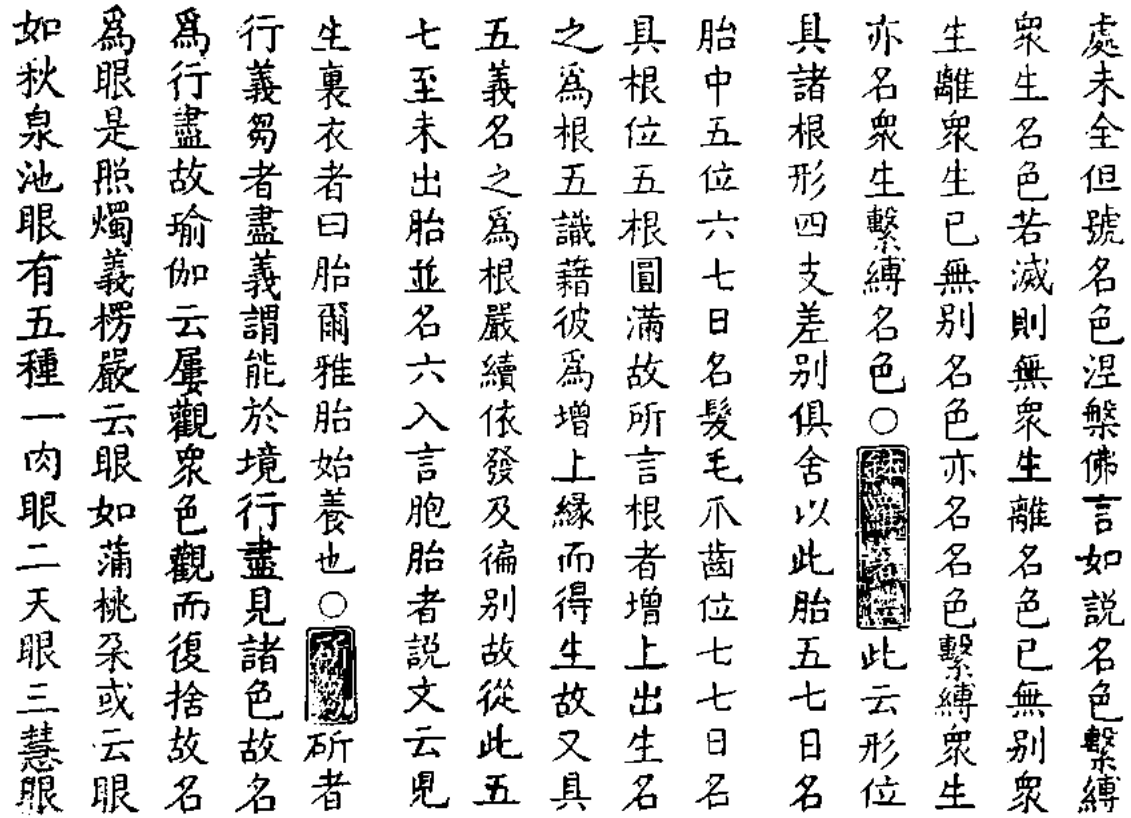 處未全但號名色涅槃佛言如説名色繫縛
衆生名色若滅則無衆生離名色已無别衆
生離衆生已無别名色亦名名色繫縛衆生
亦名衆生繫縛名色○此云形位
具諸根形四支差别俱舍以此胎五七日名
胎中五位六七日名髮毛爪齒位七七日名
具根位五根圓滿故所言根者增上出生名
之爲根五識藉彼爲增上緣而得生故又具
五義名之爲根嚴續依發及徧别故從此五
七至未出胎並名六入言胞胎者説文云兒
生裏衣者曰胎爾雅胎始養也○斫者
行義芻者盡義謂能於境行盡見諸色故名
爲行盡故瑜伽云屢觀衆色觀而復捨故名
爲眼是照燭義楞嚴云眼如蒲桃朶或云眼
如秋泉池眼有五種一肉眼二天眼三慧眼